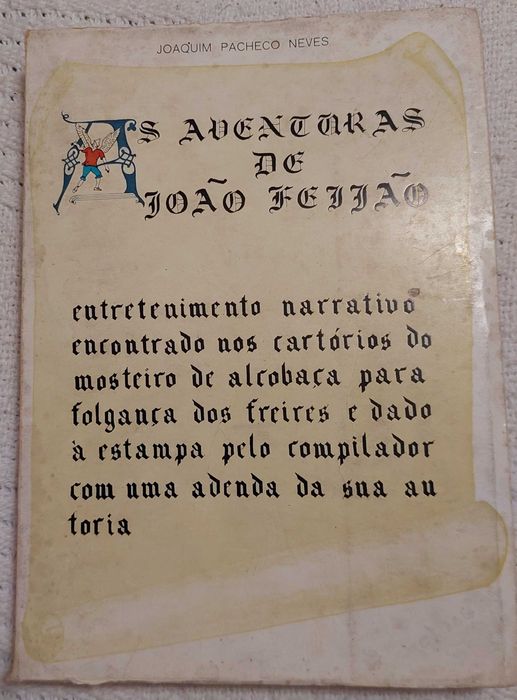 JOAQUIM PACHECO NEVES
AS AVENTURAS
DE
JOÃO FEIJÃO
entretenimento narrativo
encontrado nos cartórios do
mosteiro de alcobaça para
folgança dos freires e dado
à estampa pelo compilador
com uma adenda da sua au
toria